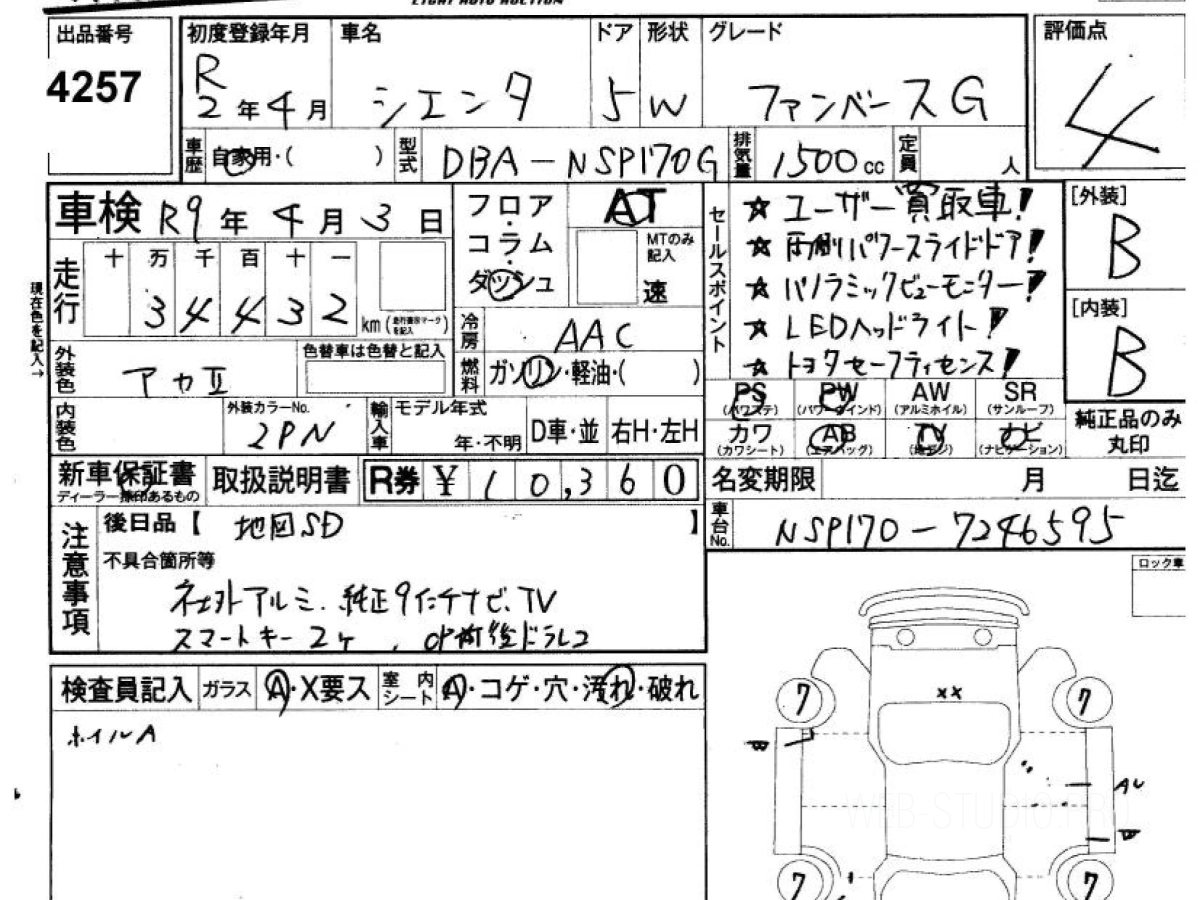 EIGHT AUTO AUCTION
出品番号 初度登録年月 車名 ドア 形状 グレード 評価点
4257 R2年4月 シエンタ 5 W ファンベースG 4
車歴 自家用・( ) 型式 DBA-NSP170G 排気量 1500cc 定員 人
車検 R9年4月3日 フロア・コラム・ダッシュ AT MTのみ記入 速
走行 十 万 千 百 十 一
34432 km (走行表示マークを記入)
現在色を記入→
冷房 AAC
外装色 アカⅡ 色替車は色替と記入 燃料 ガソリン・軽油・( )
内装色 外装カラーNo. 2PN 輸入車 モデル年式 年・不明 D車・並 右H・左H
セールスポイント
☆ ユーザー買取車!
☆ 両側パワースライドドア!
☆ パノラミックビューモニター!
☆ LEDヘッドライト!
☆ トヨタセーフティセンス!
[外装]
B
[内装]
B
PS (パワステ) PW (パワーウインド) AW (アルミホイル) SR (サンルーフ)
カワ (カワシート) AB (エアバッグ) TV (地デジ) ナビ (ナビゲーション)
純正品のみ丸印
新車保証書 ディーラー捺印あるもの 取扱説明書 R券 ¥10,360
名変期限 月 日迄
車台No. NSP170-7246595
注意事項
後日品【 地図SD 】
不具合箇所等
社外アルミ、純正9インチナビ、TV
スマートキー2ケ、OP前後ドラレコ
検査員記入 ガラス A・X要ス 室内シート A・コゲ・穴・汚れ・破れ
ホイルA
ロック車
7 ×× 7
W
AU
W
7 7
WEB-STUDIO.PRO